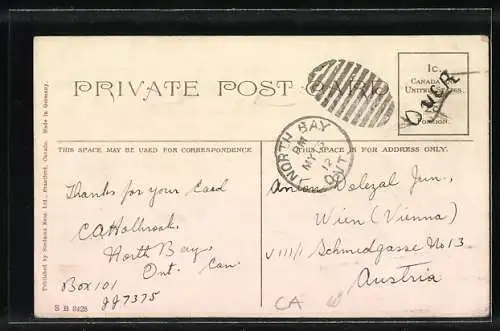 PRIVATE POST CARD
1c.
CANADA
UNITED STATES
2c.
FOREIGN.
OVER
NORTH BAY
PM
MY
12
ONT
THIS SPACE MAY BE USED FOR CORRESPONDENCE
THIS SPACE IS FOR ADDRESS ONLY.
Published by Stedman Bros. Ltd., Brantford, Canada. Made in Germany.
Thanks for your Card
CAHolbrook,
North Bay,
Ont. Can.
Box 101
JJ7375
S B 3425
Anton Dolezal Jun.,
Wien (Vienna)
VIII/1 Schmidgasse No 13
Austria
CA